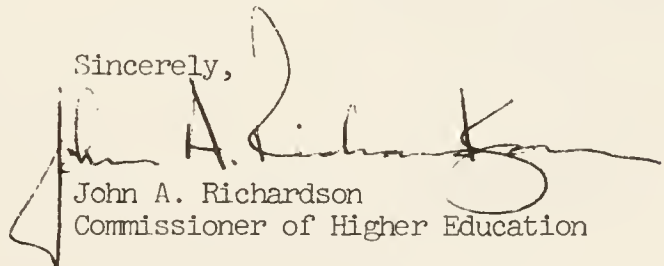 Sincerely,
John A. Richardson
John A. Richardson
Commissioner of Higher Education